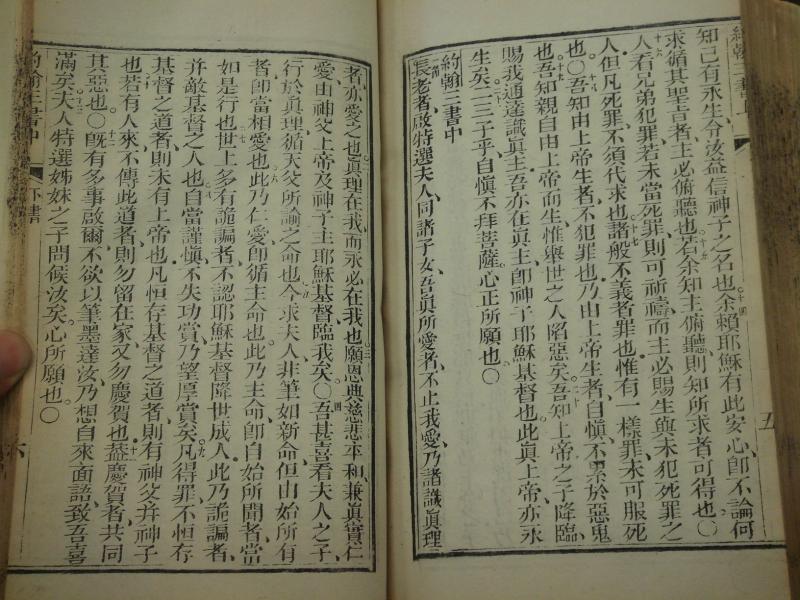 約翰一書上 五
知己有永生、令汝益信神子之名也、十四余賴耶穌有此安心、卽不論何
求、循其聖旨者、主必俯聽也、十五若余知主俯聽、則知所求者可得也、〇
十六人若見弟犯罪、若未當死罪、則可祈禱、而主必賜生與未犯死罪之
人、但凡死罪、不須代求也、十七諸般不義者、罪也、惟有一樣罪未可服死
也、〇十八吾知由上帝生者、不犯罪也、乃由上帝生者、自慎、不累於惡鬼
也、十九吾知親自由上帝而生、惟舉世之人陷惡矣、二十吾知上帝之子降臨、
賜我通達、識眞主、吾亦在眞主、卽神子耶穌基督也、此眞上帝、亦永
生矣、二一二三子乎、自慎不拜菩薩、心正所願也、〇
約翰二書中
一長老者、啟特選夫人、同諸子女、吾眞所愛者、不止我愛、乃諸識眞理
者、亦愛之也、二眞理在我、而永必在我也、三願恩典、慈悲、平和、兼眞實仁
愛、由神父上帝、及神子主耶穌基督臨我矣、〇四吾甚喜看夫人之子、
行於眞理、循天父所諭之命也、五今求夫人、非筆如新命、但由始所有
者、卽當相愛也、六此乃仁愛、卽循主命也、此乃主命、卽自始所聞者、當
如是行也、七世上多有詭騙者、不認耶穌基督降世成人、此乃詭騙者、
并敵基督之人也、八自當謹慎、不失功賞、乃望厚賞矣、九凡得罪、不恒存
基督之道者、則未有上帝也、凡恒存基督之道者、則有神父并神子
也、十若有人來、不傳此道者、則勿留在家、又勿慶賀也、十一蓋慶賀者、共同
其惡也、〇十二旣有多事啟爾、不欲以筆墨達汝、乃想自來面語、致吾喜
滿矣、十三夫人特選姊妹之子、問候汝矣、心所願也、〇
約翰三書中 下書 六